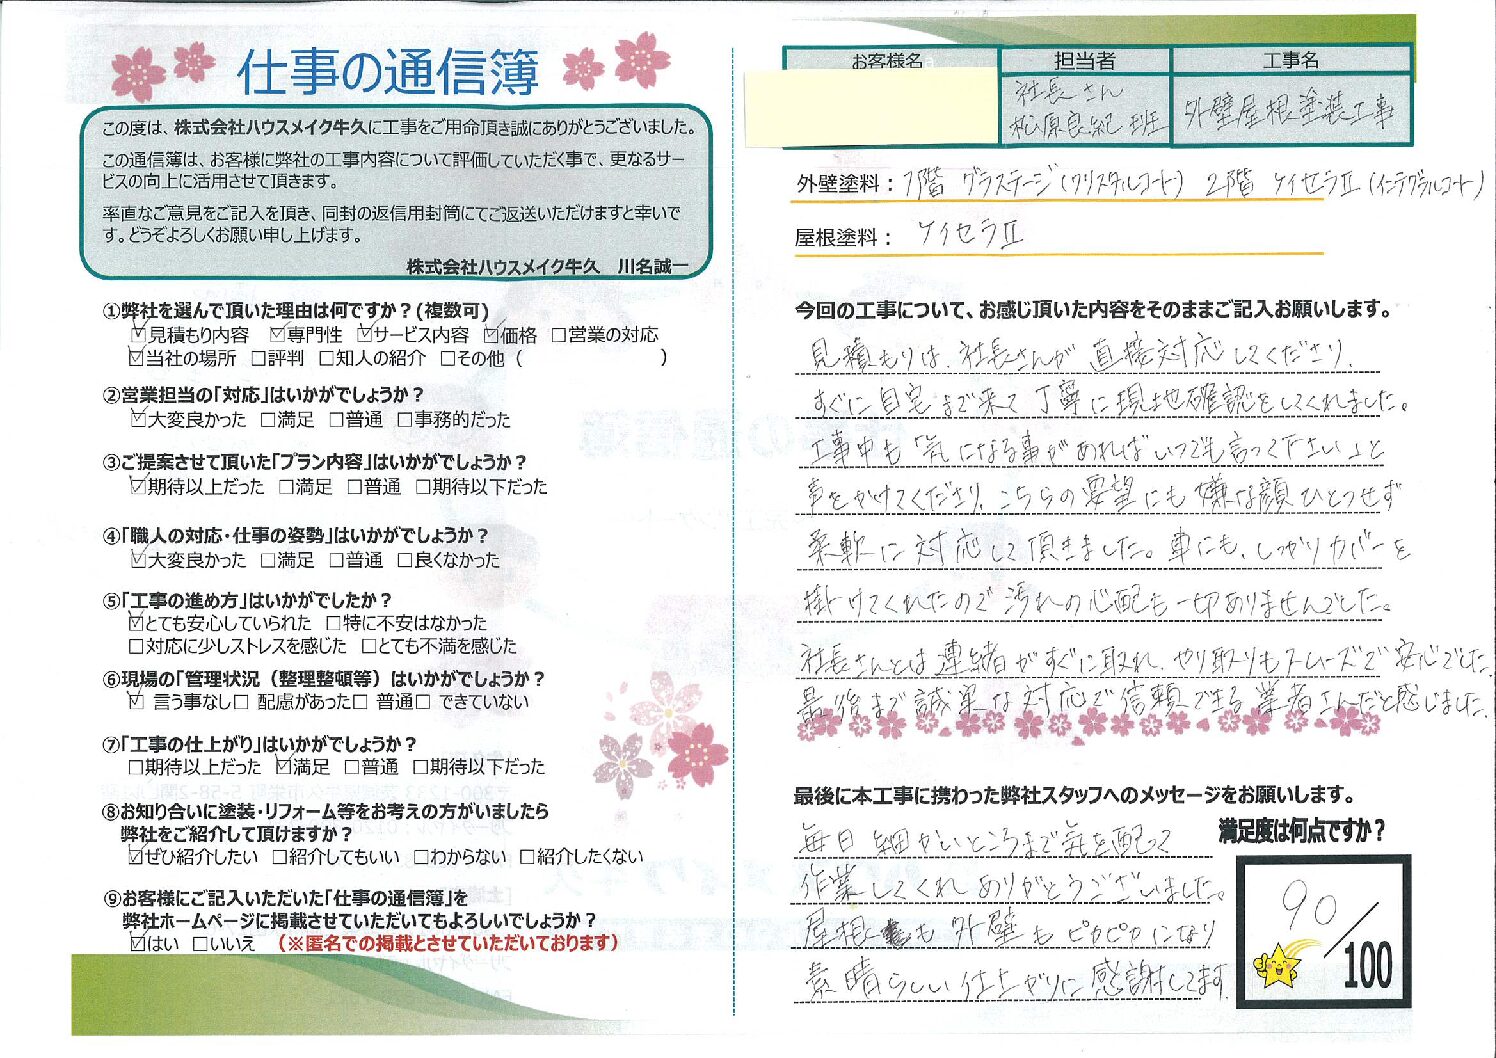 仕事の通信簿
この度は、株式会社ハウスメイク牛久に工事をご用命頂き誠にありがとうございました。
この通信簿は、お客様に弊社の工事内容について評価していただく事で、更なるサー
ビスの向上に活用させて頂きます。
率直なご意見をご記入を頂き、同封の返信用封筒にてご返送いただけますと幸いで
す。どうぞよろしくお願い申し上げます。
株式会社ハウスメイク牛久 川名誠一
①弊社を選んで頂いた理由は何ですか？(複数可)
☑見積もり内容 ☑専門性 ☑サービス内容 ☑価格 □営業の対応
☑当社の場所 □評判 □知人の紹介 □その他（ ）
②営業担当の「対応」はいかがでしょうか？
☑大変良かった □満足 □普通 □事務的だった
③ご提案させて頂いた「プラン内容」はいかがでしょうか？
☑期待以上だった □満足 □普通 □期待以下だった
④「職人の対応・仕事の姿勢」はいかがでしょうか？
☑大変良かった □満足 □普通 □良くなかった
⑤「工事の進め方」はいかがでしたか？
☑とても安心していられた □特に不安はなかった
□対応に少しストレスを感じた □とても不満を感じた
⑥現場の「管理状況（整理整頓等）はいかがでしょうか？
☑ 言う事なし□ 配慮があった□ 普通□ できていない
⑦「工事の仕上がり」はいかがでしょうか？
□期待以上だった ☑満足 □普通 □期待以下だった
⑧お知り合いに塗装・リフォーム等をお考えの方がいましたら
弊社をご紹介して頂けますか？
☑ぜひ紹介したい □紹介してもいい □わからない □紹介したくない
⑨お客様にご記入いただいた「仕事の通信簿」を
弊社ホームページに掲載させていただいてもよろしいでしょうか？
☑はい □いいえ （※匿名での掲載とさせていただいております）
お客様名 担当者 工事名
社長さん
松原良紀 班 外壁屋根塗装工事
外壁塗料： 1階 グラステージ(クリスタルコート) 2階 ケイセラⅡ(インテグラルコート)
屋根塗料： ケイセラⅡ
今回の工事について、お感じ頂いた内容をそのままご記入お願いします。
見積もりは、社長さんが直接対応してくださり、
すぐに自宅まで来て丁寧に現地確認をしてくれました。
工事中も「気になる事があればいつでも言って下さい」と
声をかけてくださり、こちらの要望にも嫌な顔ひとつせず
柔軟に対応して頂きました。車にも、しっかりカバーを
掛けてくれたので汚れの心配も一切ありませんでした。
社長さんとは連絡がすぐに取れ、やり取りもスムーズで安心でした。
最後まで誠実な対応で信頼できる業者さんだと感じました。
最後に本工事に携わった弊社スタッフへのメッセージをお願いします。
毎日細かいところまで気を配って
作業してくれありがとうございました。
屋根も外壁もピカピカになり
素晴らしい仕上がりに感謝してます。
満足度は何点ですか？
90／100